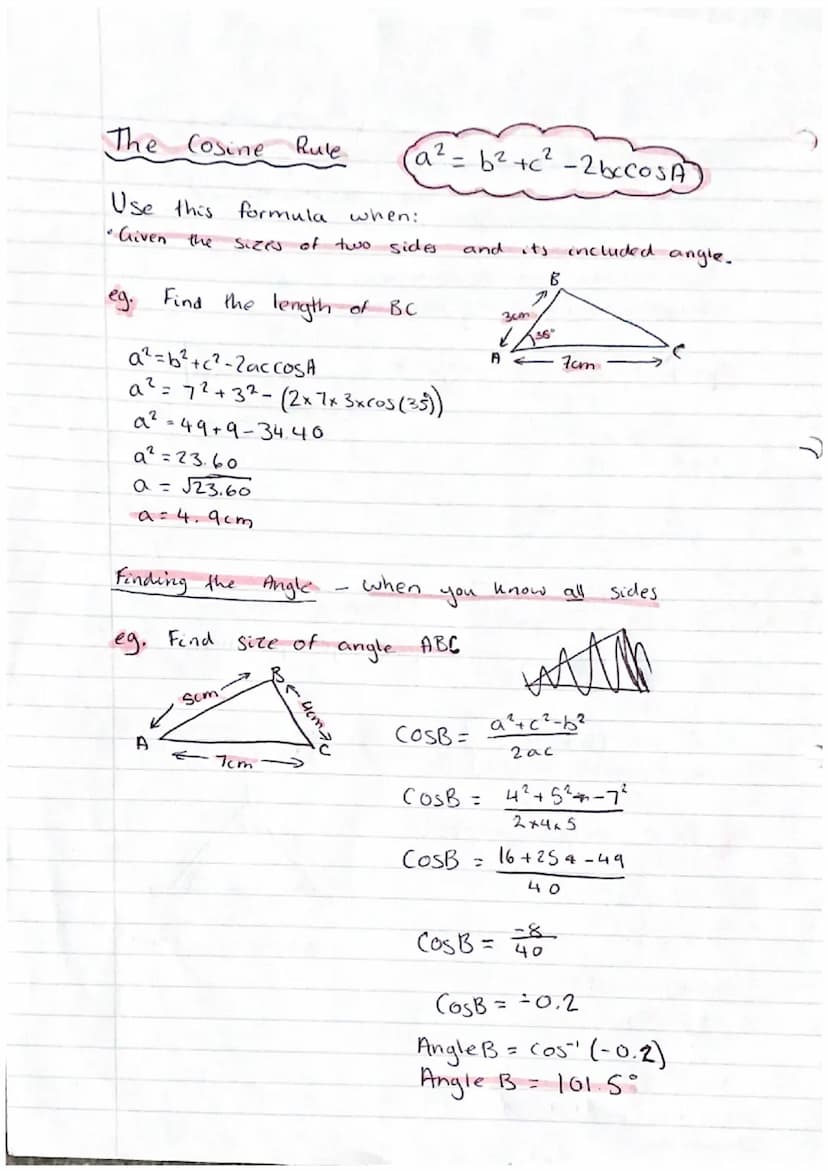 The Cosine Rule
a² = b² + c² - 2bccosA
Use this formula when:
• Given the sizes of two sides and its included angle.
eg. Find the length of BC
B
3cm
35°
A
7cm
C
a² = b² + c² - 2accosA
a² = 7² + 3² - (2x7x3xcos(35°))
a² = 49 + 9 - 34.40
a² = 23.60
a = √23.60
a = 4.9cm
Finding the Angle - when you know all sides
eg. Find size of angle ABC
B
5cm
4cm
A
C
7cm
CosB = a²+c²-b² / 2ac
CosB = 4²+5²-7² / 2x4x5
CosB = 16+25-49 / 40
CosB = -8/40
CosB = -0.2
Angle B = cos⁻¹ (-0.2)
Angle B = 101.5°